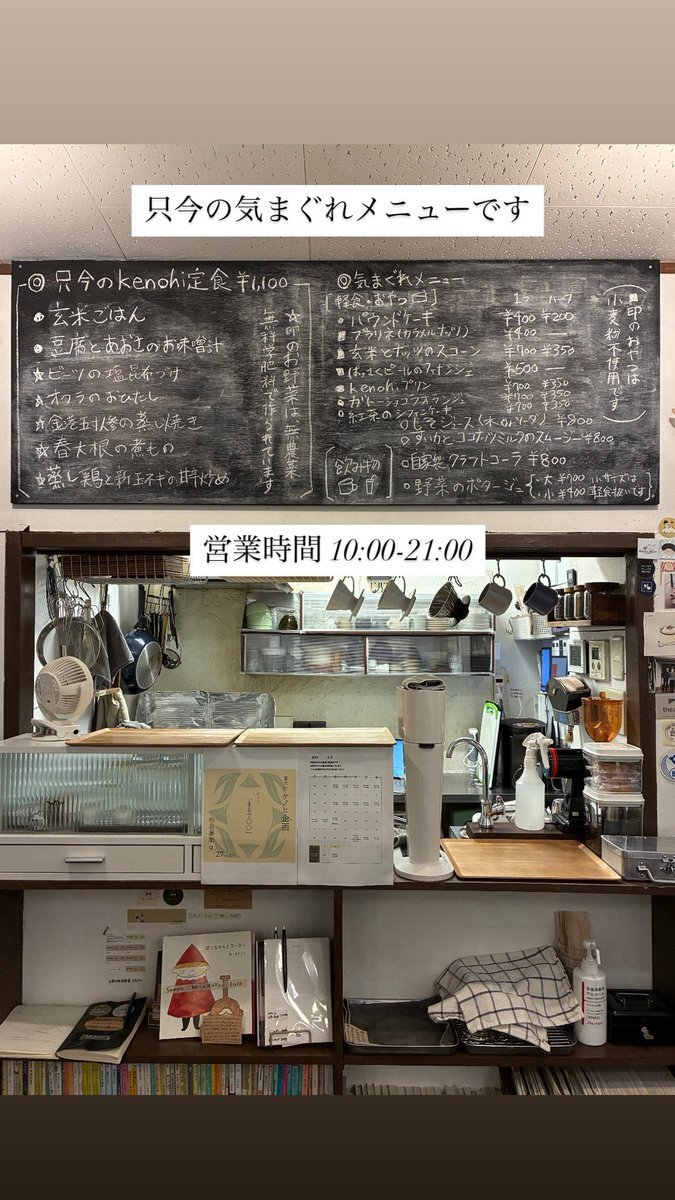 只今の気まぐれメニューです
◎只今のkenohi定食 ¥1,100
●玄米ごはん
●豆腐とあおさのお味噌汁
☆ビーツの塩昆布づけ
☆オクラのおひたし
☆金美人参の蒸し焼き
☆春大根の煮もの
☆蒸し鶏と新玉ネギの甘辛炒め
☆印のお野菜は、無農薬
無科学肥料で作られています
◎気まぐれメニュー
軽食・おやつ 1つ ハーフ
パウンドケーキ ¥400 ¥200
プラリネ(カラメルナッツ) ¥400 —
玄米とナッツのスコーン ¥700 ¥350
はっさくピールのフィナンシェ ¥500 —
kenohiプリン ¥700 ¥350
ガトーショコラオランジュ ¥700 ¥350
紅茶のシフォンケーキ ¥700 ¥350
■印のおやつは
小麦粉不使用です
飲み物
○じそジュース(水 or ソーダ) ¥800
○すいかとココナツミルクのスムージー ¥800
○自家製クラフトコーラ ¥800
○野菜のポタージュ
・大 ¥700
・小 ¥400
小サイズは
軽食扱いです
営業時間 10:00-21:00
ケノと企画
ぼっちゃんとスースー
Sample